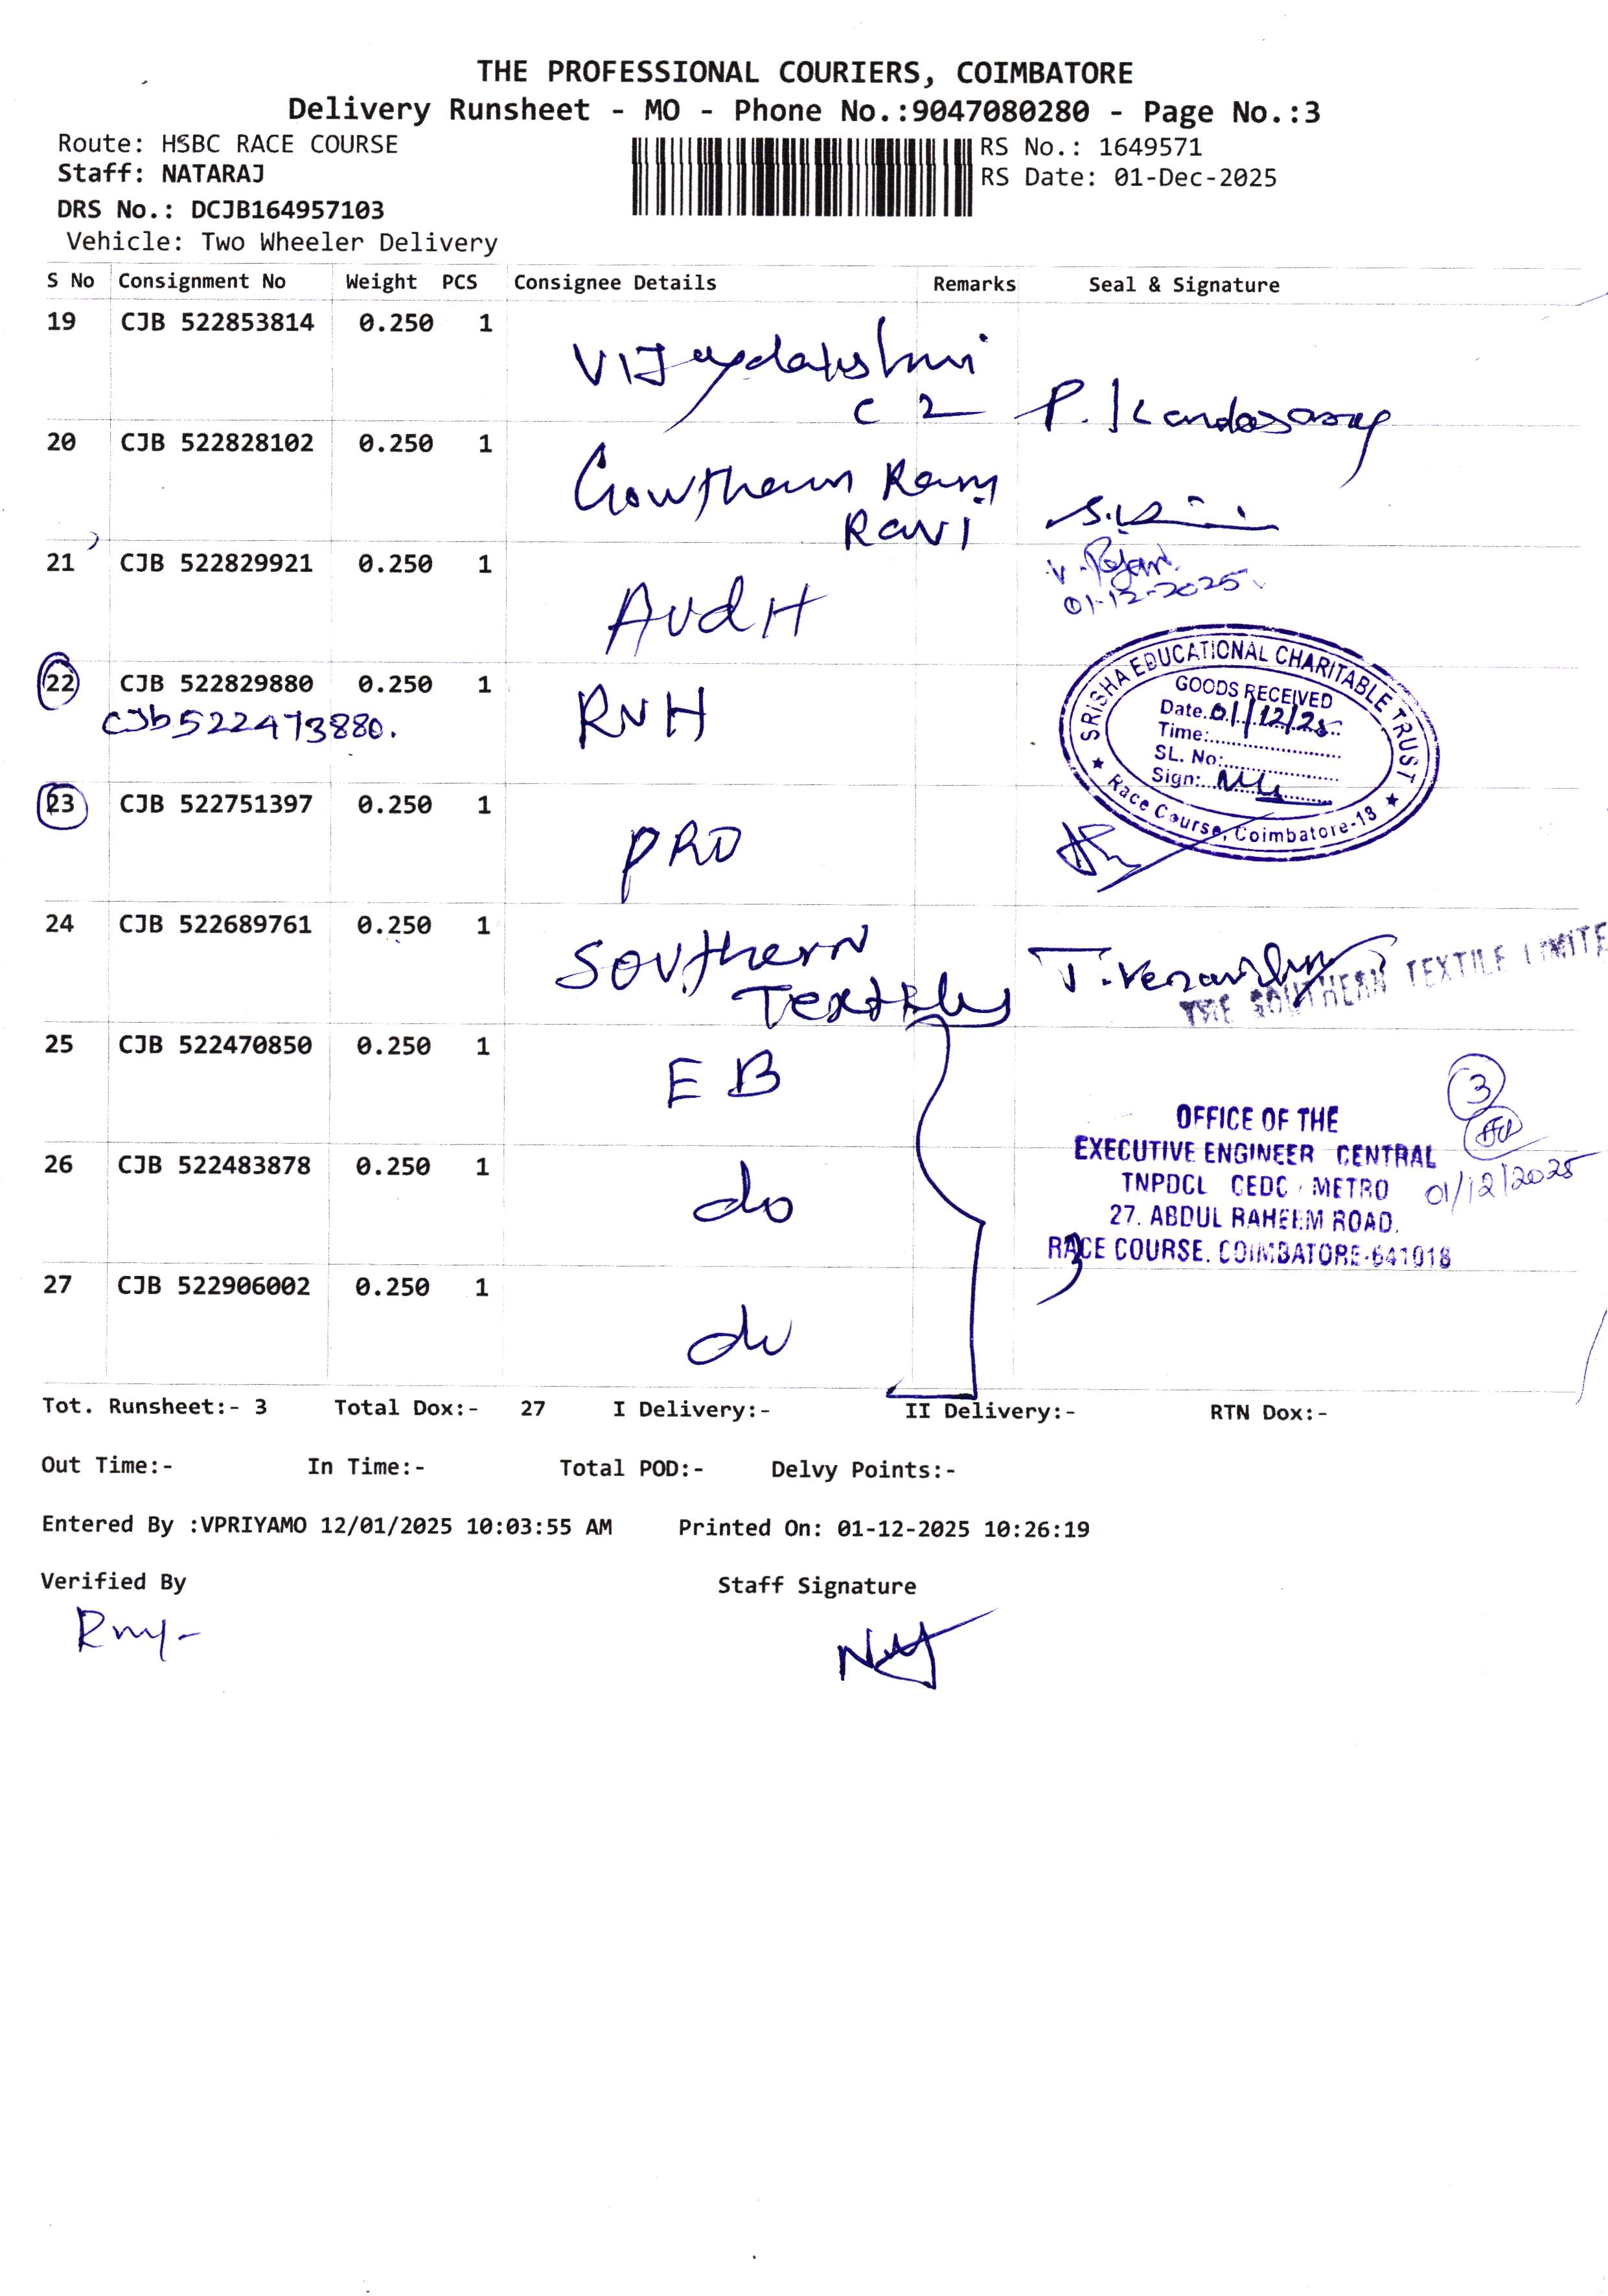 THE PROFESSIONAL COURIERS, COIMBATORE
Delivery Runsheet - MO - Phone No.:9047080280 - Page No.:3
Route: HSBC RACE COURSE
RS No.: 1649571
Staff: NATARAJ
RS Date: 01-Dec-2025
DRS No.: DCJB164957103
Vehicle: Two Wheeler Delivery
S No Consignment No Weight PCS Consignee Details Remarks Seal & Signature
19 CJB 522853814 0.250 1
C 2 P. Kandasamy
20 CJB 522828102 0.250 1
Gowtham Ram
Ravi
21 CJB 522829921 0.250 1
01-12-2025
AudH
22 CJB 522829880 0.250 1 RNH
CJb522473880.
SRISHA EDUCATIONAL CHARITABLE TRUST
GOODS RECEIVED
Date.01/12/25
Time:
SL. No:
Sign:
Race Course, Coimbatore-18
23 CJB 522751397 0.250 1
PRO
24 CJB 522689761 0.250 1
Southern
Textiles
THE SOUTHERN TEXTILE LIMITE
25 CJB 522470850 0.250 1
E B
3
OFFICE OF THE
EXECUTIVE ENGINEER CENTRAL
TNPDCL CEDC METRO
01/12/2025
27. ABDUL RAHEEM ROAD.
RACE COURSE. COIMBATORE-641018
26 CJB 522483878 0.250 1
do
3
27 CJB 522906002 0.250 1
do
Tot. Runsheet:- 3 Total Dox:- 27 I Delivery:- II Delivery:- RTN Dox:-
Out Time:- In Time:- Total POD:- Delvy Points:-
Entered By :VPRIYAMO 12/01/2025 10:03:55 AM Printed On: 01-12-2025 10:26:19
Verified By Staff Signature